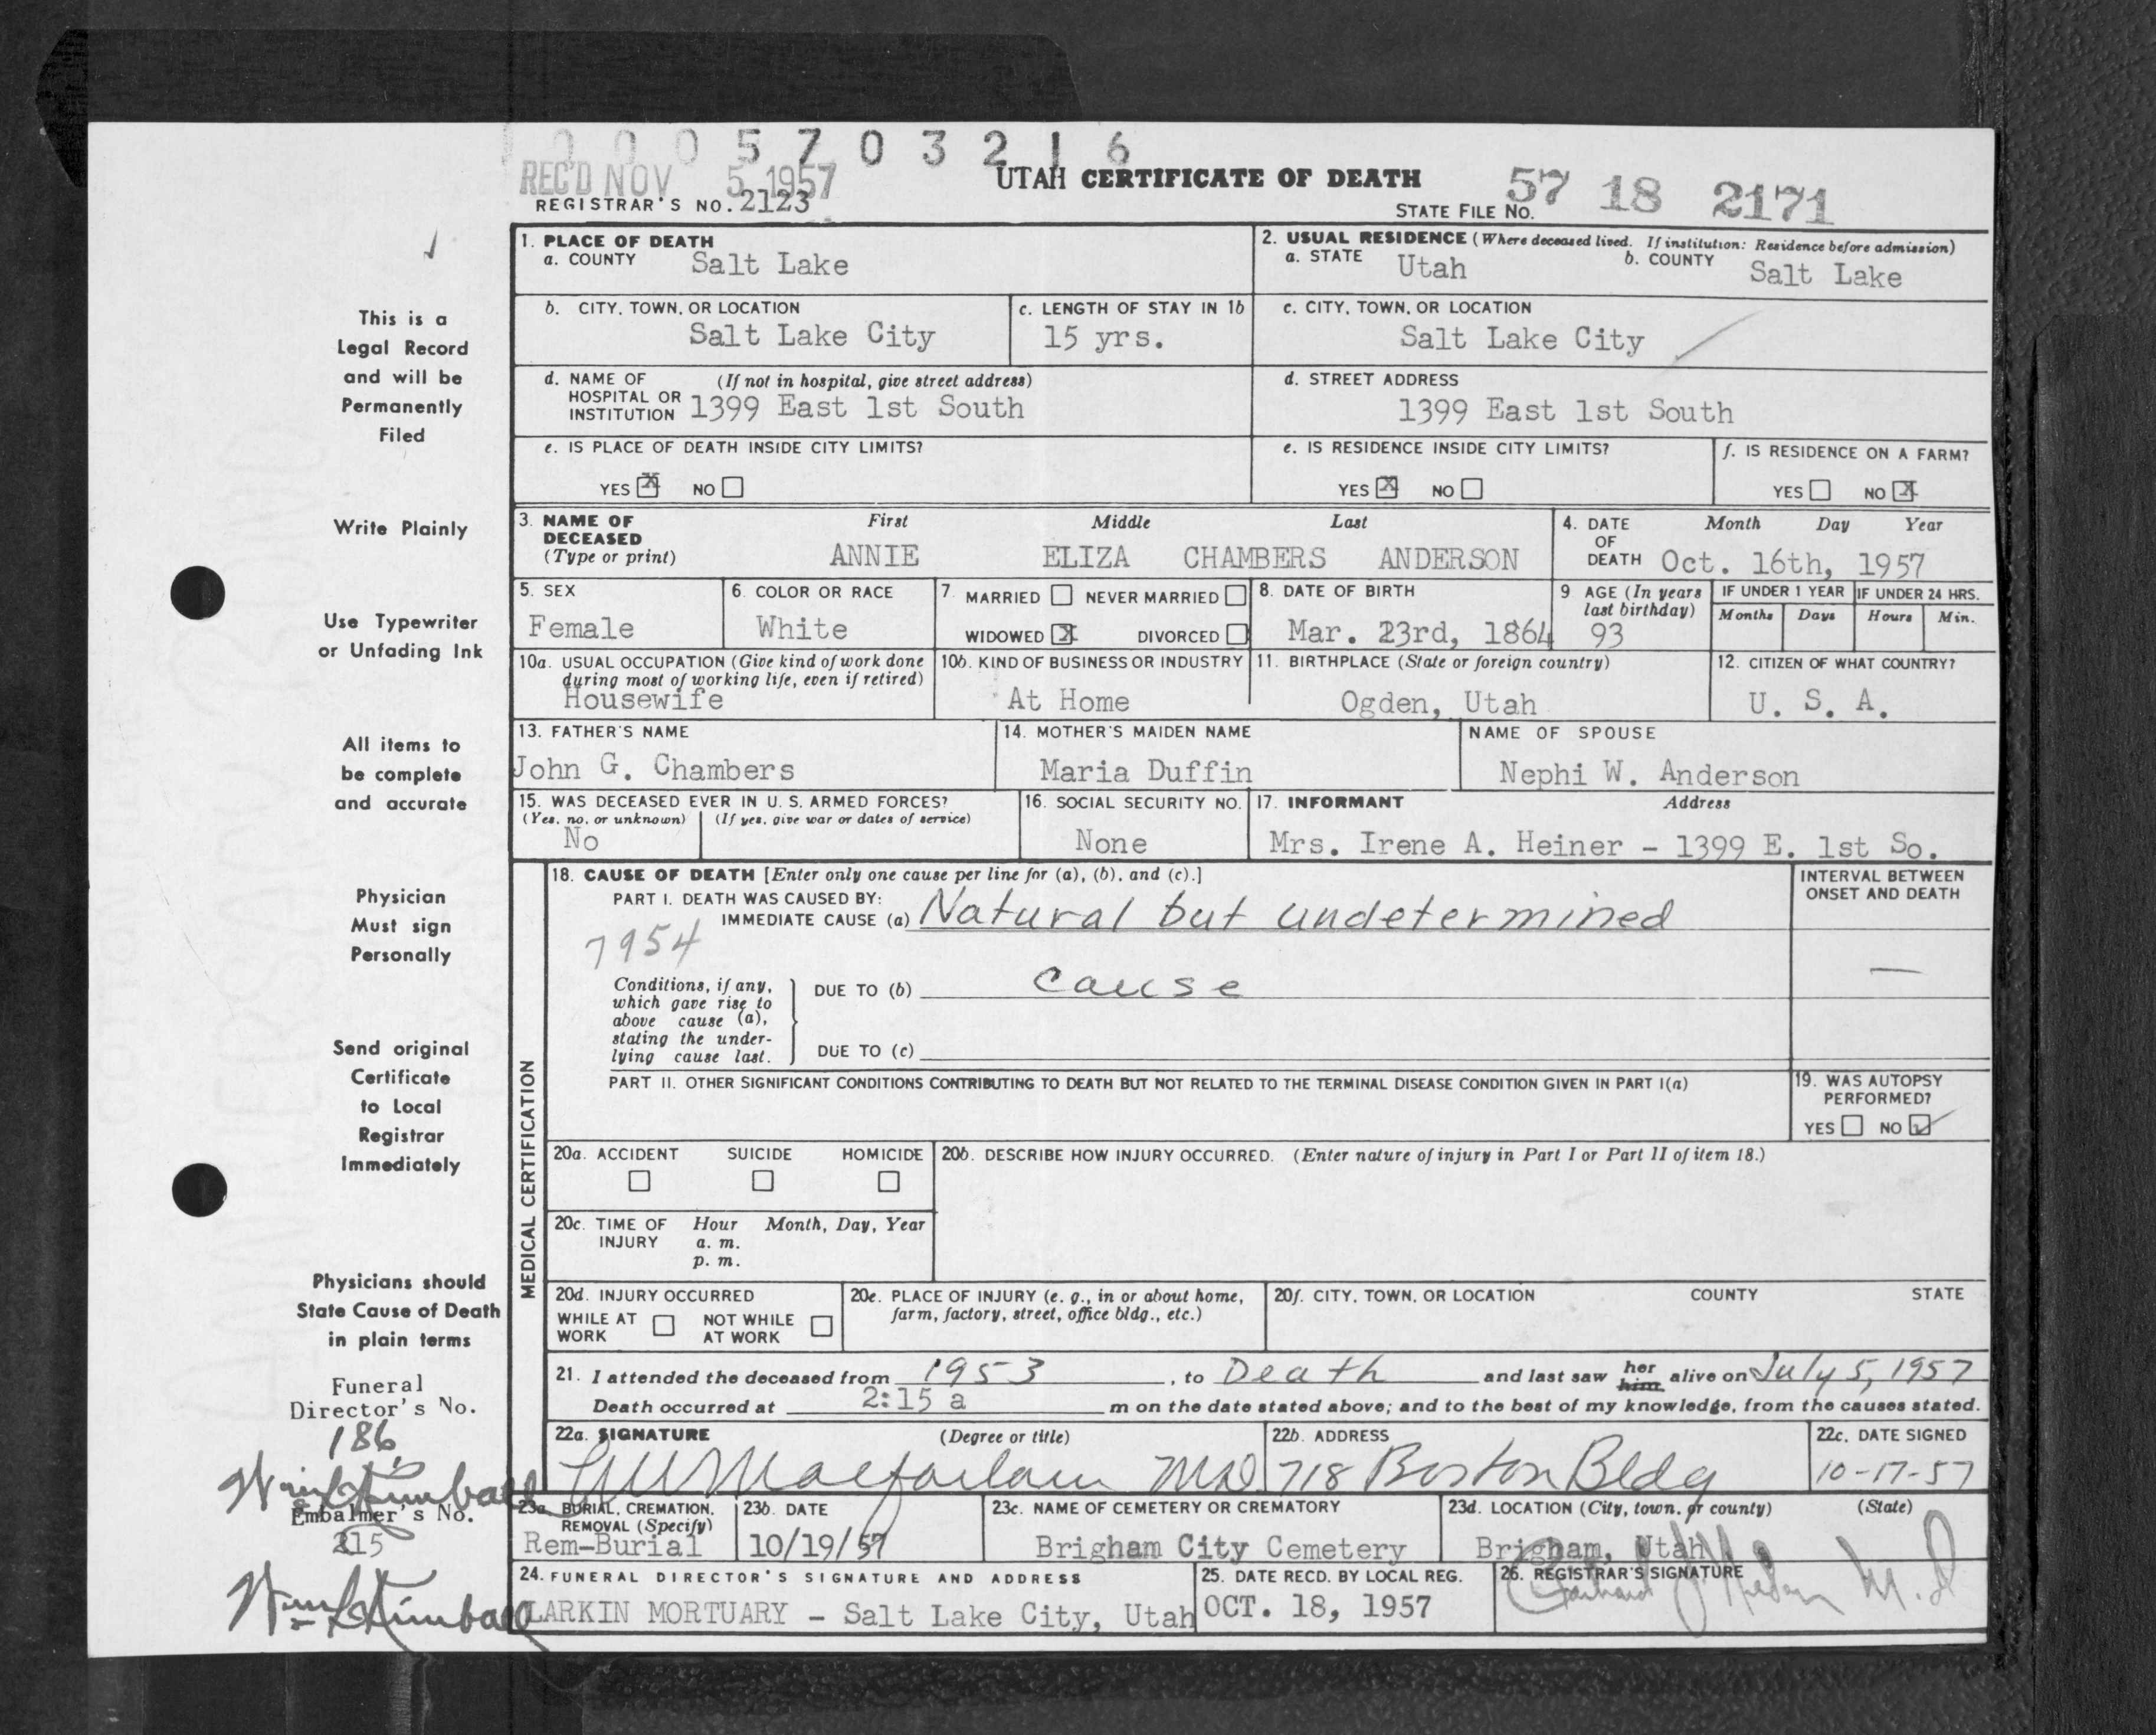 0 0 0 5 7 0 3 2 1 6
REC'D NOV 5 1957
UTAH CERTIFICATE OF DEATH
REGISTRAR'S NO. 2123
STATE FILE NO. 57 18 2171
This is a
Legal Record
and will be
Permanently
Filed
Write Plainly
Use Typewriter
or Unfading Ink
All items to
be complete
and accurate
Physician
Must sign
Personally
Send original
Certificate
to Local
Registrar
Immediately
Physicians should
State Cause of Death
in plain terms
Funeral
Director's No.
186
Wm L Kimball
Embalmer's No.
215
Wm L Kimball
1. PLACE OF DEATH
a. COUNTY Salt Lake
2. USUAL RESIDENCE (Where deceased lived. If institution: Residence before admission)
a. STATE Utah b. COUNTY Salt Lake
b. CITY, TOWN, OR LOCATION
Salt Lake City
c. LENGTH OF STAY IN 1b
15 yrs.
c. CITY, TOWN, OR LOCATION
Salt Lake City
d. NAME OF (If not in hospital, give street address)
HOSPITAL OR
INSTITUTION 1399 East 1st South
d. STREET ADDRESS
1399 East 1st South
e. IS PLACE OF DEATH INSIDE CITY LIMITS?
YES X NO
e. IS RESIDENCE INSIDE CITY LIMITS?
YES X NO
f. IS RESIDENCE ON A FARM?
YES NO X
3. NAME OF First Middle Last
DECEASED
(Type or print) ANNIE ELIZA CHAMBERS ANDERSON
4. DATE Month Day Year
OF
DEATH Oct. 16th, 1957
5. SEX
Female
6. COLOR OR RACE
White
7. MARRIED NEVER MARRIED
WIDOWED X DIVORCED
8. DATE OF BIRTH
Mar. 23rd, 1864
9 AGE (In years
last birthday)
93
IF UNDER 1 YEAR
Months Days
IF UNDER 24 HRS.
Hours Min.
10a. USUAL OCCUPATION (Give kind of work done
during most of working life, even if retired)
Housewife
10b. KIND OF BUSINESS OR INDUSTRY
At Home
11. BIRTHPLACE (State or foreign country)
Ogden, Utah
12. CITIZEN OF WHAT COUNTRY?
U. S. A.
13. FATHER'S NAME
John G. Chambers
14. MOTHER'S MAIDEN NAME
Maria Duffin
NAME OF SPOUSE
Nephi W. Anderson
15. WAS DECEASED EVER IN U. S. ARMED FORCES?
(Yes, no, or unknown) (If yes, give war or dates of service)
No
16. SOCIAL SECURITY NO.
None
17. INFORMANT Address
Mrs. Irene A. Heiner - 1399 E. 1st So.
MEDICAL CERTIFICATION
18. CAUSE OF DEATH [Enter only one cause per line for (a), (b), and (c).]
PART I. DEATH WAS CAUSED BY:
IMMEDIATE CAUSE (a) Natural but undetermined
7954
Conditions, if any,
which gave rise to
above cause (a),
stating the under-
lying cause last.
DUE TO (b) cause
DUE TO (c)
INTERVAL BETWEEN
ONSET AND DEATH
—
PART II. OTHER SIGNIFICANT CONDITIONS CONTRIBUTING TO DEATH BUT NOT RELATED TO THE TERMINAL DISEASE CONDITION GIVEN IN PART I(a)
19. WAS AUTOPSY
PERFORMED?
YES NO ✓
20a. ACCIDENT SUICIDE HOMICIDE
20b. DESCRIBE HOW INJURY OCCURRED. (Enter nature of injury in Part I or Part II of item 18.)
20c. TIME OF Hour Month, Day, Year
INJURY a. m.
p. m.
20d. INJURY OCCURRED
WHILE AT NOT WHILE
WORK AT WORK
20e. PLACE OF INJURY (e. g., in or about home,
farm, factory, street, office bldg., etc.)
20f. CITY, TOWN, OR LOCATION COUNTY STATE
21. I attended the deceased from 1953, to Death and last saw her him alive on July 5, 1957
Death occurred at 2:15 a m on the date stated above; and to the best of my knowledge, from the causes stated.
22a. SIGNATURE (Degree or title)
Macfarlane MD
22b. ADDRESS
718 Boston Bldg
22c. DATE SIGNED
10-17-57
23a. BURIAL, CREMATION,
REMOVAL (Specify)
Rem-Burial
23b. DATE
10/19/57
23c. NAME OF CEMETERY OR CREMATORY
Brigham City Cemetery
23d. LOCATION (City, town, or county) (State)
Brigham, Utah
24. FUNERAL DIRECTOR'S SIGNATURE AND ADDRESS
LARKIN MORTUARY - Salt Lake City, Utah
25. DATE RECD. BY LOCAL REG.
OCT. 18, 1957
26. REGISTRAR'S SIGNATURE
M.D